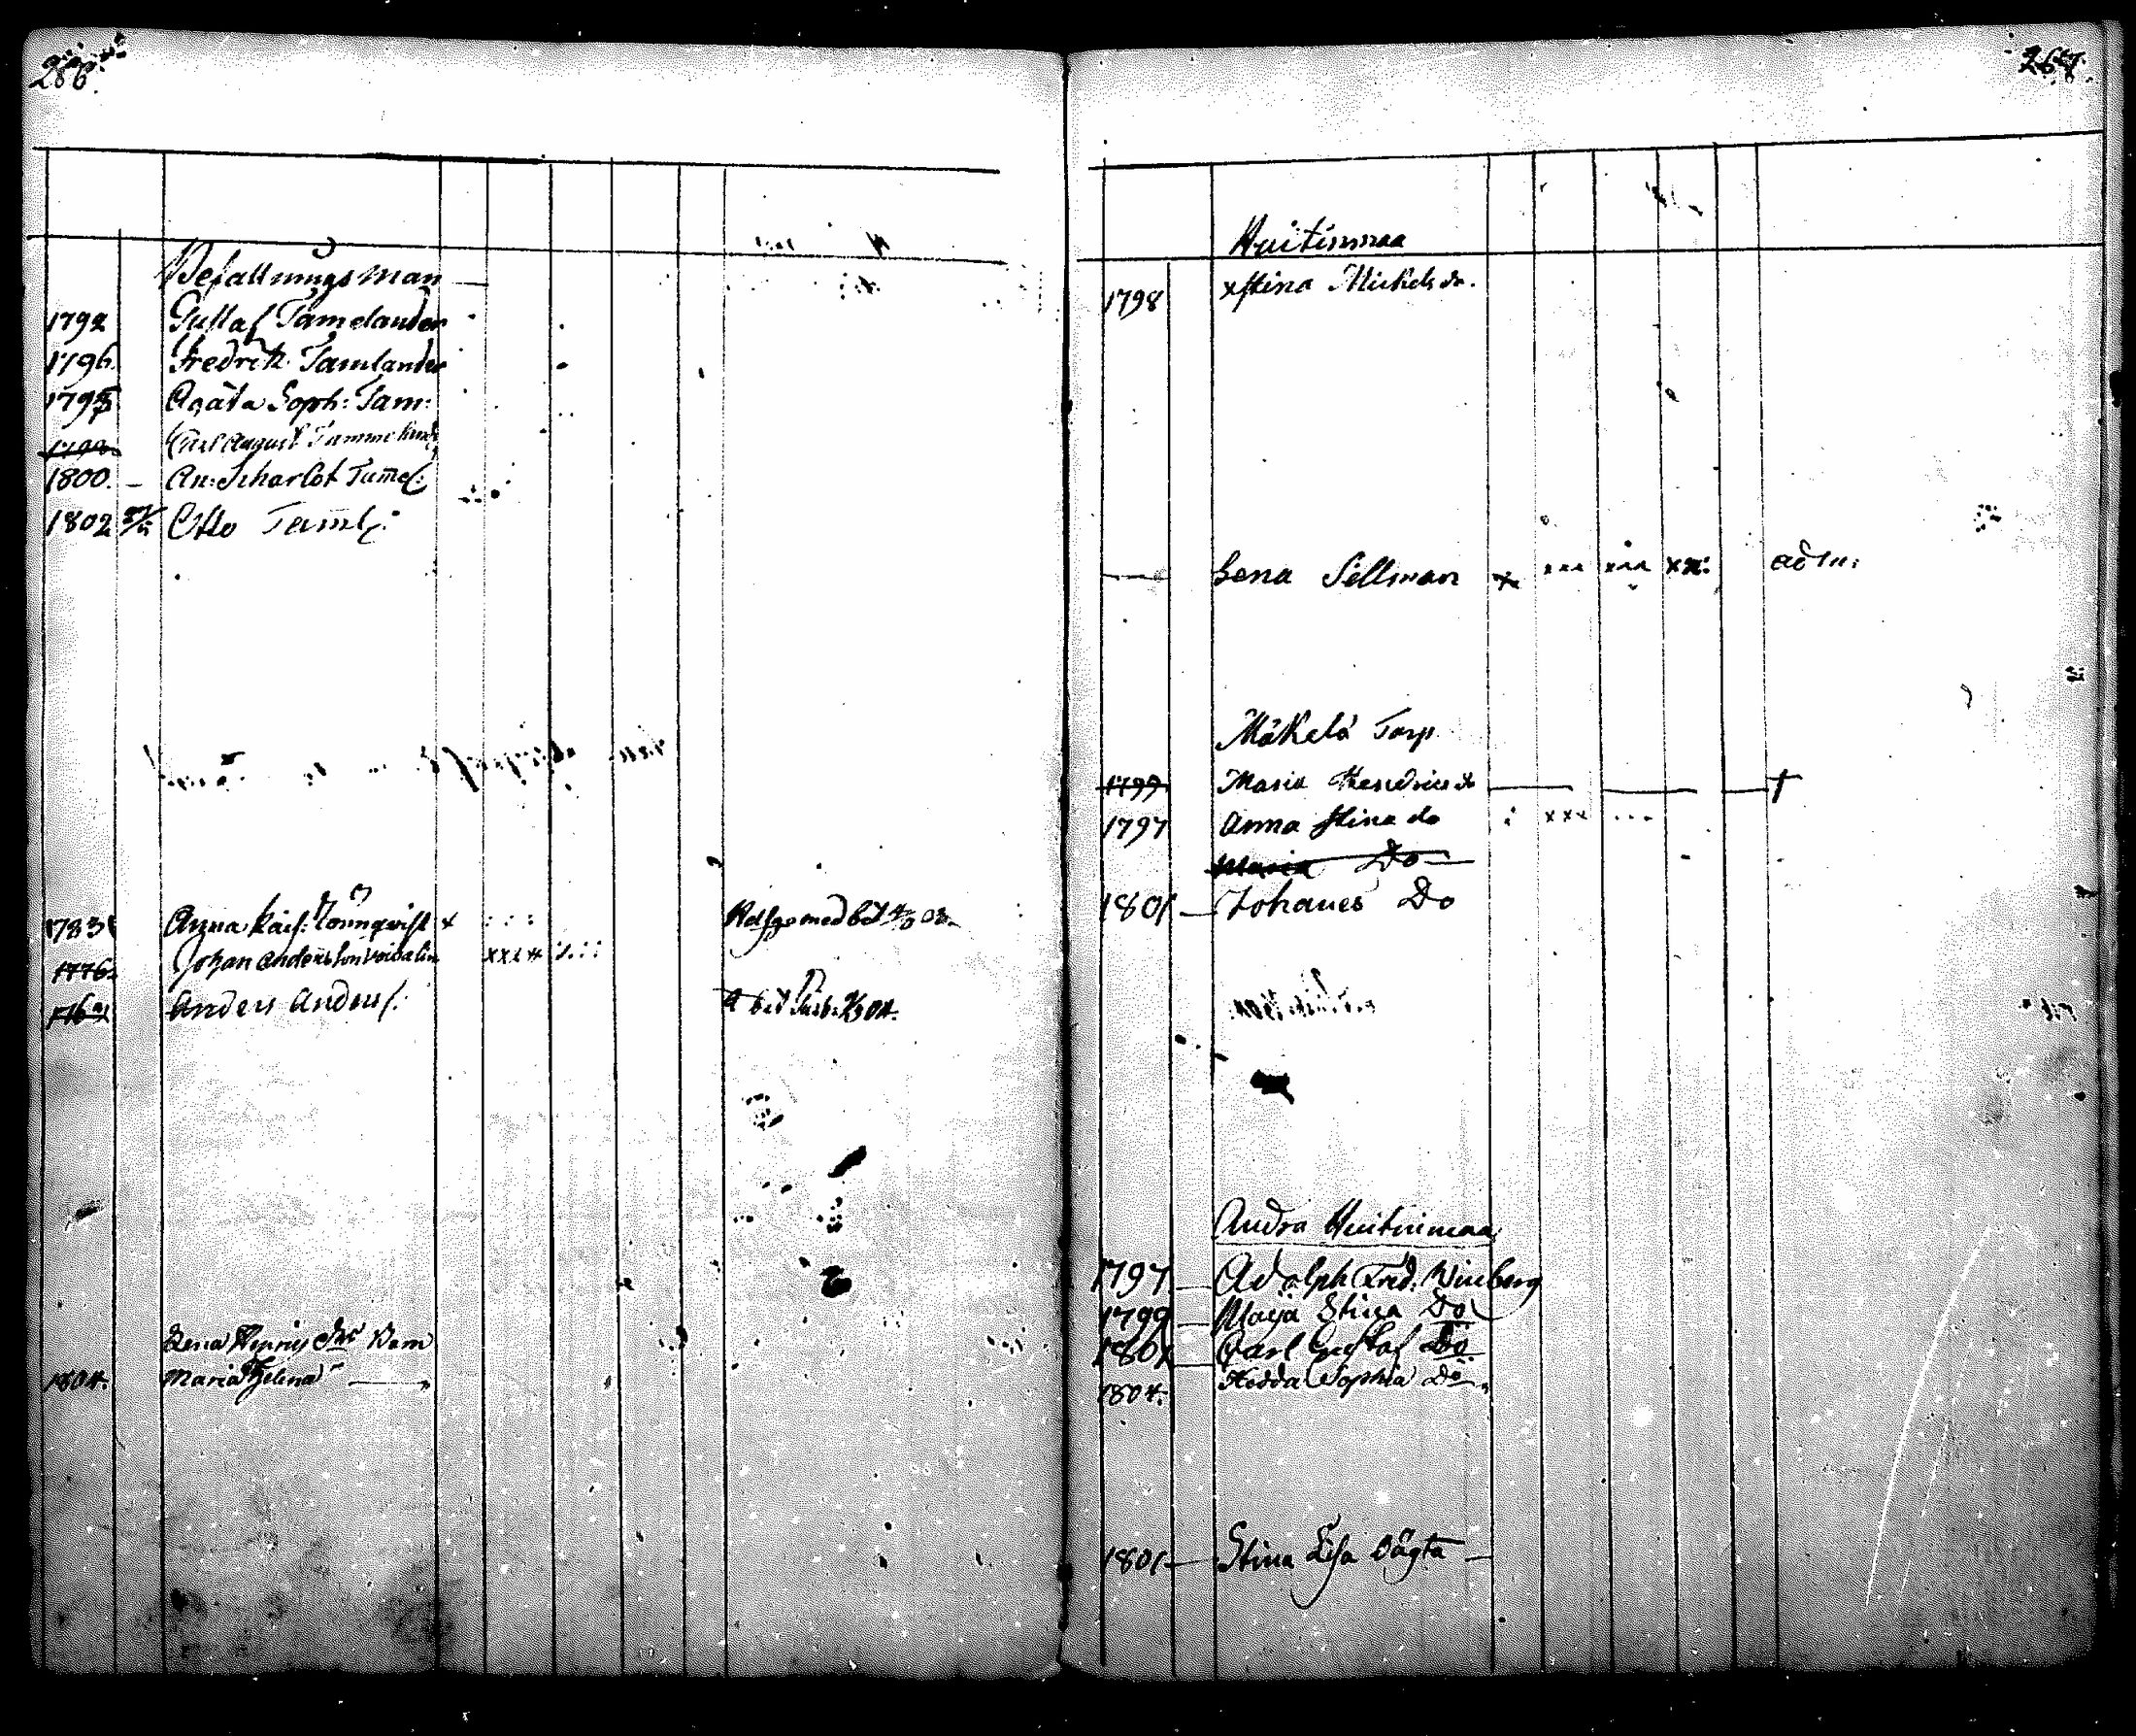 286.
Befallningsman
1792 Gustaf Tamelander
1796. Fredrik Tamlander
1795 Agata Soph: Tam:
Carl August
1800. – An: Scharlot Tamel:
1802 Otto Taml:
1783 Anna Kais: Lönnqvist x
1776. Johan Andersson xxxx
Anders Anders: bet
Lena Henrics dr Barn
1804. Maria Helena
267.
Huitinmaa
1798 xstina Mickels dr.
Lena Sellman x xxx xxx xx: adm:
Mäkelä Torp
1799 Maria Hendrics dr †
1797 Anna Stina do xxx
Maria Do
1801 – Johanes Do
Andra Huitinmaa
1797 – Adolph Fred. Winberg
1799 – Maja Stina Do
1801 – Carl Gustaf Do
1804. Hedda Sophia Do
1801 – Stina Lisa